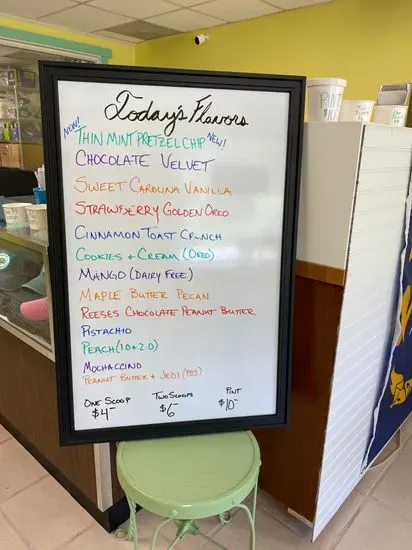 Today's Flavors
NEW! THIN MINT PRETZEL CHIP NEW!
CHOCOLATE VELVET
SWEET CAROLINA VANILLA
STRAWBERRY GOLDEN OREO
CINNAMON TOAST CRUNCH
COOKIES + CREAM (OREO)
MANGO (DAIRY FREE)
MAPLE BUTTER PECAN
REESES CHOCOLATE PEANUT BUTTER
PISTACHIO
PEACH (10+2.0)
MOCHACCINO
PEANUT BUTTER + JEDI (PBJ)
ONE SCOOP TWO SCOOPS PINT
$4- $6- $10-
PINT
$10